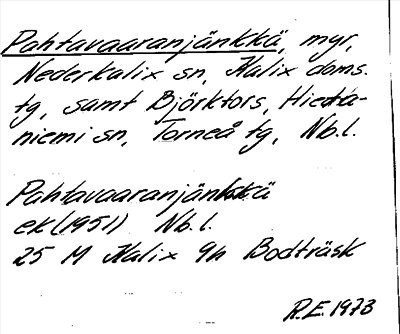 Pahtavaaranjänkkä, myr,
Nederkalix sn, Kalix doms.
tg, samt Björktors, Hieta-
niemi sn, Torneå tg, Nb.l.
Pahtavaaranjänkkä
ek (1951) Nb.l.
25 M Kalix 9h Bodträsk
R.E. 1973